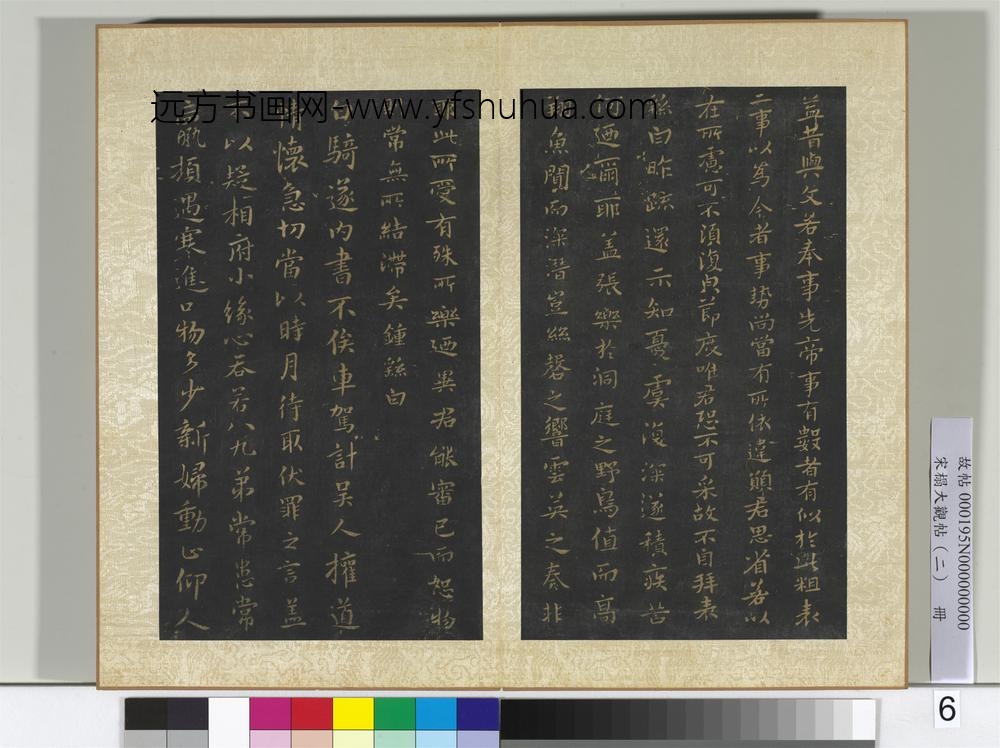 远方书画网-www.yfshuhua.com
益昔與文若奉事先帝事有數者有似於此粗表
二事以為今者事勢尚當有所依違願君思省若以
在所慮可不須復皃節度唯君恐不可采故不自拜表
繇白昨疏還示知憂虞復深遂積疾苦
何迺爾耶蓋張樂於洞庭之野鳥值而高
翔魚聞而深潛豈絲磬之響雲英之奏非
耶此所愛有殊所樂迺異君能審己而恕物
則常無所結滯矣鍾繇白
白騎遂內書不俟車駕計吴人擁道
情懷急切當以時月待取伏罪之言蓋
不以疑相府小緣心吞若八九弟常患常
羸頓遇寒進口物多少新婦動止仰人
故帖 000195N000000000
宋搨大觀帖(二) 冊
6